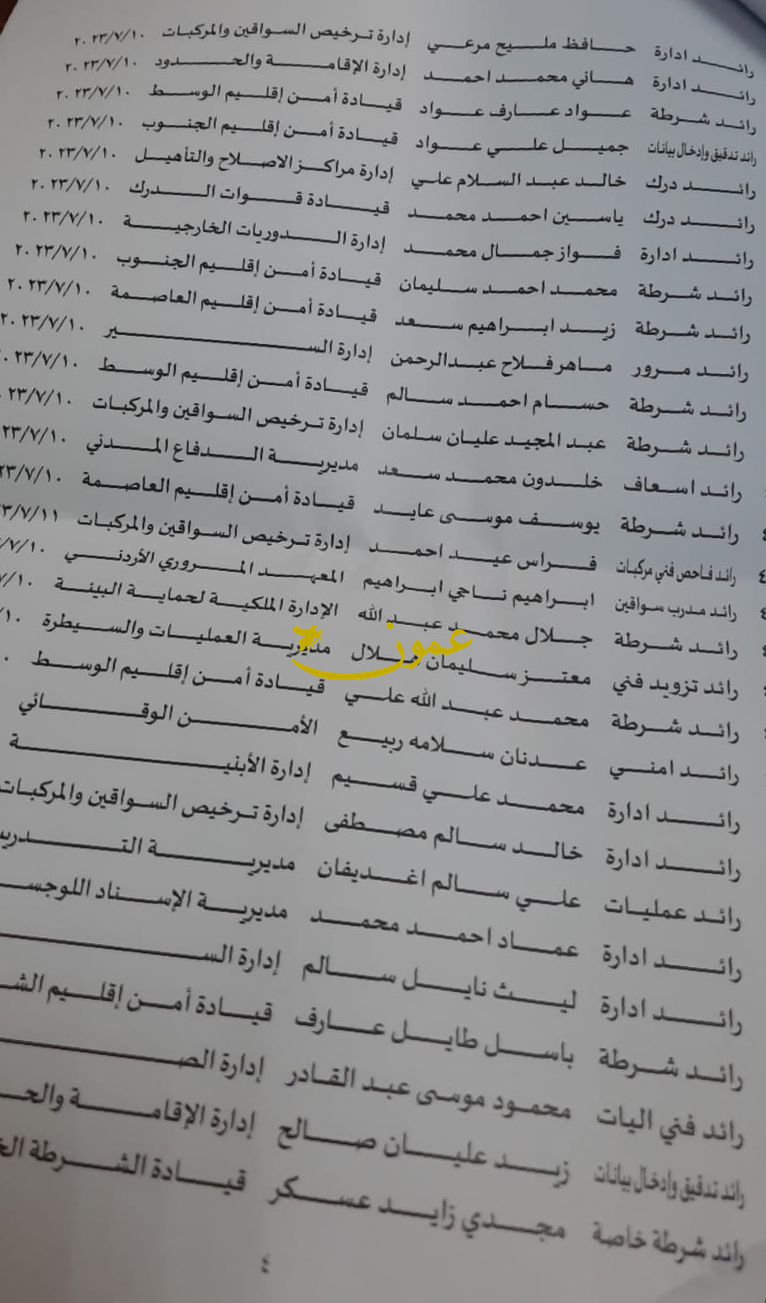 رائد ادارة حافظ مليح مرعي إدارة ترخيص السواقين والمركبات ٢٠٢٣/٧/١٠
رائد ادارة هاني محمد احمد إدارة الإقامة والحدود ٢٠٢٣/٧/١٠
رائد شرطة عواد عارف عواد قيادة أمن إقليم الوسط ٢٠٢٣/٧/١٠
رائد تدقيق وإدخال بيانات جميل علي عواد قيادة أمن إقليم الجنوب ٢٠٢٣/٧/١٠
رائد درك خالد عبد السلام علي إدارة مراكز الاصلاح والتأهيل ٢٠٢٣/٧/١٠
رائد درك ياسين احمد محمد قيادة قوات الدرك ٢٠٢٣/٧/١٠
رائد ادارة فواز جمال محمد إدارة الدوريات الخارجية ٢٠٢٣/٧/١٠
رائد شرطة محمد احمد سليمان قيادة أمن إقليم الجنوب ٢٠٢٣/٧/١٠
رائد شرطة زيد ابراهيم سعد قيادة أمن إقليم العاصمة ٢٠٢٣/٧/١٠
رائد مرور ماهر فلاح عبدالرحمن إدارة السير ٢٠٢٣/٧/١٠
رائد شرطة حسام احمد سالم قيادة أمن إقليم الوسط ٢٠٢٣/٧/١٠
رائد شرطة عبد المجيد عليان سلمان إدارة ترخيص السواقين والمركبات ٢٣/٧/١٠
رائد اسعاف خلدون محمد سعد مديرية الدفاع المدني ٢٣/٧/١٠
رائد شرطة يوسف موسى عايد قيادة أمن إقليم العاصمة ٢٣/٧/١٠
رائد فاحص فني مركبات فراس عيد احمد إدارة ترخيص السواقين والمركبات ٣/٧/١١
رائد مدرب سواقين ابراهيم ناجي ابراهيم المعهد المروري الأردني /٧/١٠
رائد شرطة جلال محمد عبد الله الإدارة الملكية لحماية البيئة ٧/١٠
رائد تزويد فني معتز سليمان هلال مديرية العمليات والسيطرة /١٠
رائد شرطة محمد عبد الله علي قيادة أمن إقليم الوسط ٠
رائد امني عدنان سلامه ربيع الأمن الوقائي
رائد ادارة محمد علي قسيم إدارة الأبنية
رائد ادارة خالد سالم مصطفى إدارة ترخيص السواقين والمركبات
رائد عمليات علي سالم اغديفان مديرية التدريب
رائد ادارة عماد احمد محمد مديرية الإسناد اللوجس
رائد ادارة ليث نايل سالم إدارة الس
رائد شرطة باسل طايل عارف قيادة أمن إقليم الش
رائد فني اليات محمود موسى عبد القادر إدارة الص
رائد تدقيق وإدخال بيانات زيد عليان صالح إدارة الإقامة والح
رائد شرطة خاصة مجدي زايد عسكر قيادة الشرطة الخ
٤
عمون